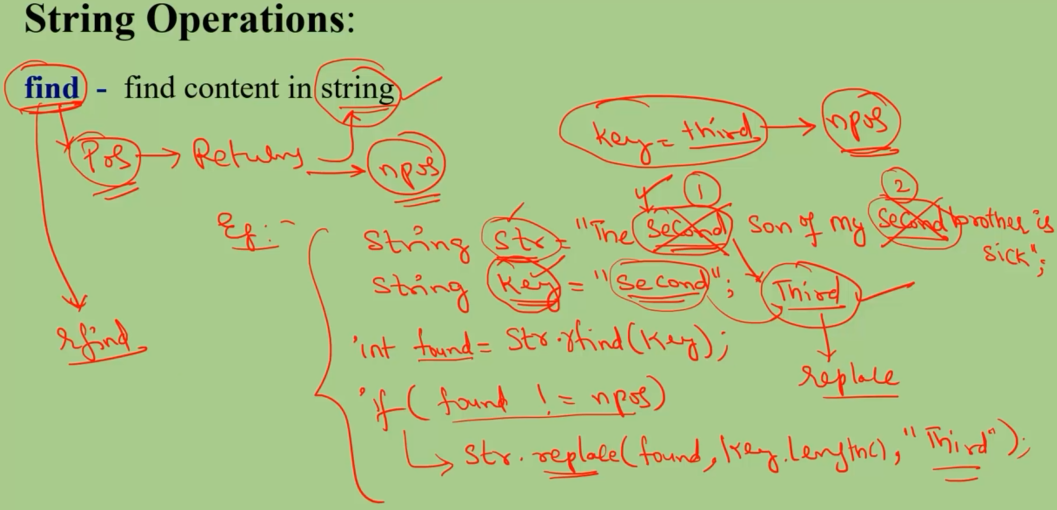 String Operations:
find - find content in string
key = third → npos
Pos → Returns → npos
① ②
Eg:-
String str = "The second son of my second brother is
sick";
string key = "second"; Third
rfind
int found = str.rfind(key);
replace
if( found != npos)
str.replace(found, key.length(), "Third");